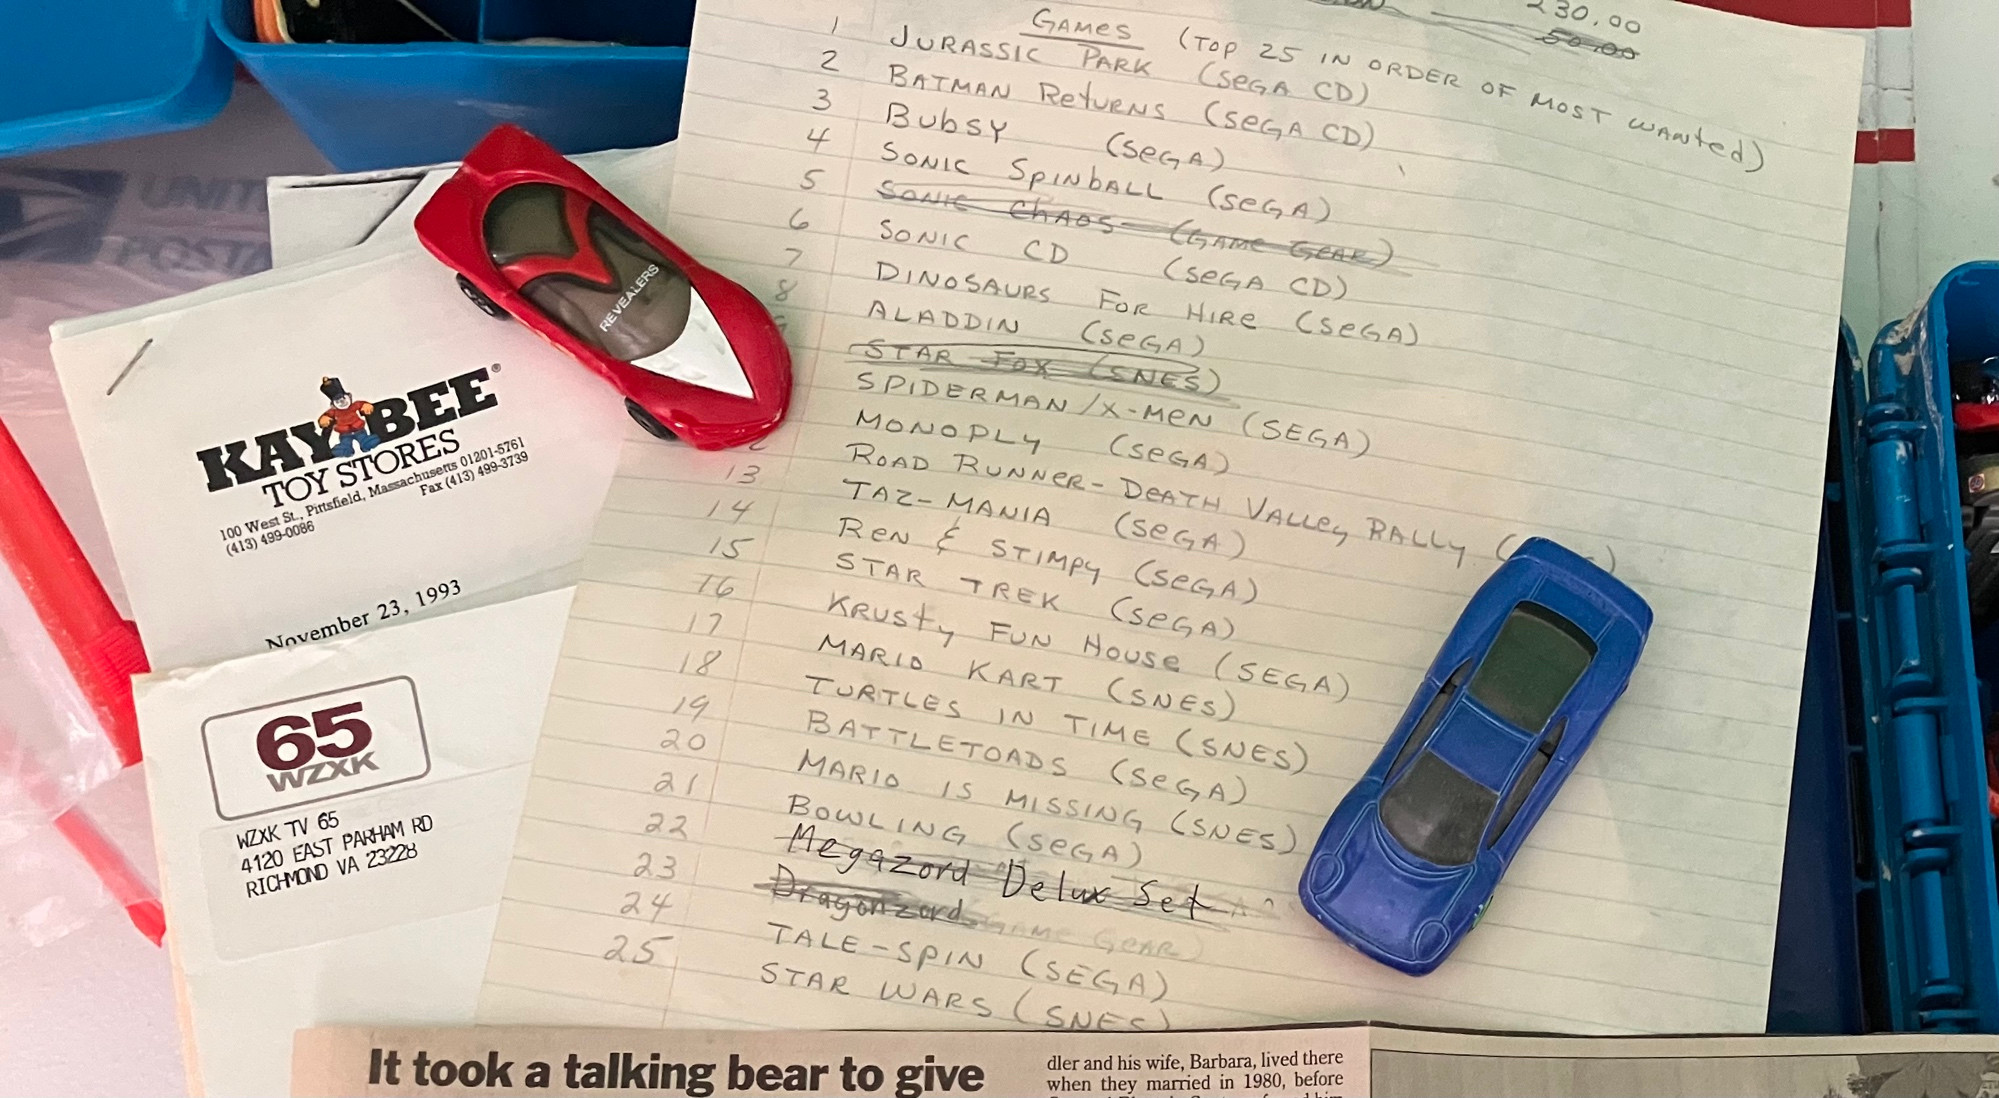 230.00
50.00
GAMES (TOP 25 IN ORDER OF MOST WANTED)
1 JURASSIC PARK (SEGA CD)
2 BATMAN RETURNS (SEGA CD)
3 BUBSY (SEGA)
4 SONIC SPINBALL (SEGA)
5 SONIC CHAOS (GAME GEAR)
6 SONIC CD (SEGA CD)
7 DINOSAURS FOR HIRE (SEGA)
8 ALADDIN (SEGA)
STAR FOX (SNES)
SPIDERMAN/X-MEN (SEGA)
MONOPLY (SEGA)
ROAD RUNNER-DEATH VALLEY RALLY
13 TAZ-MANIA (SEGA)
14 REN & STIMPY (SEGA)
15 STAR TREK (SEGA)
16 KRUSTY FUN HOUSE (SEGA)
17 MARIO KART (SNES)
18 TURTLES IN TIME (SNES)
19 BATTLETOADS (SEGA)
20 MARIO IS MISSING (SNES)
21 BOWLING (SEGA)
22 Megazord Delux Set
23 Dragonzord GAME GEAR)
24 TALE-SPIN (SEGA)
25 STAR WARS (SNES)
REVEALERS
UNIT
POSTA
KAY BEE®
TOY STORES
100 West St., Pittsfield, Massachusetts 01201-5761
(413) 499-0086 Fax (413) 499-3739
November 23, 1993
65
WZXK
WZXK TV 65
4120 EAST PARHAM RD
RICHMOND VA 23228
It took a talking bear to give
dler and his wife, Barbara, lived there
when they married in 1980, before